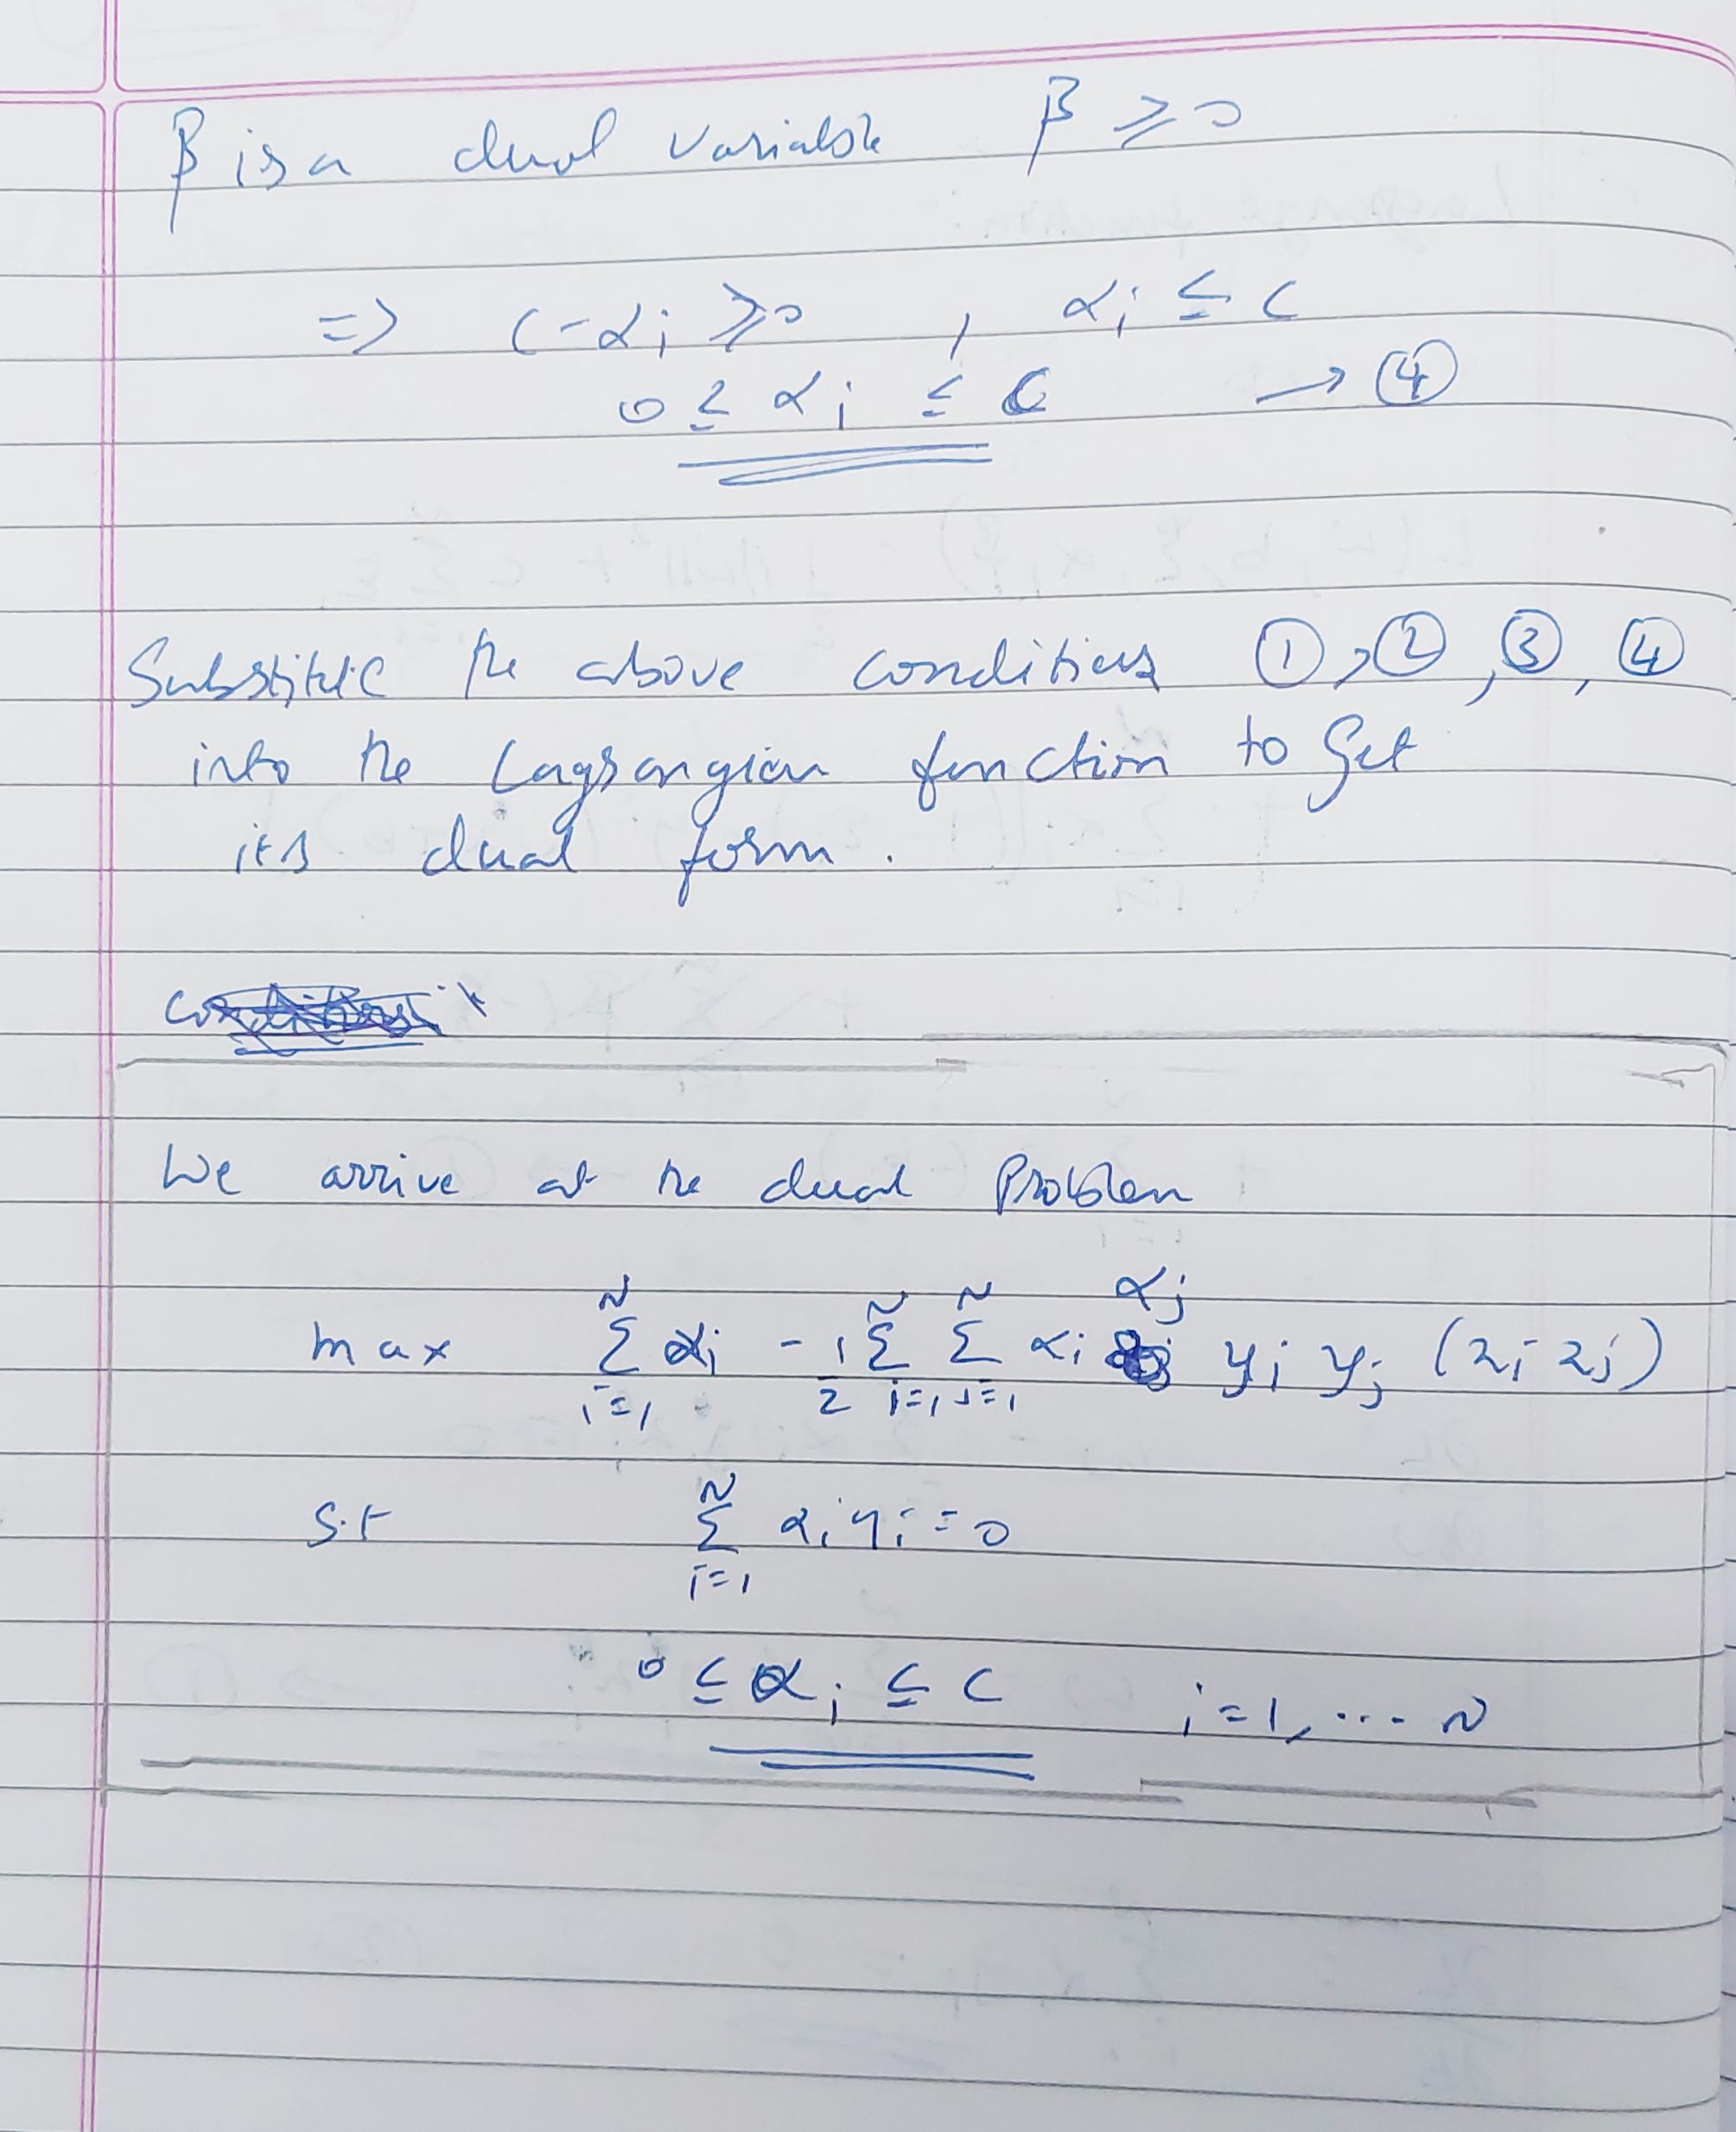 β is a dual variable β ≥ 0
=> C - αi ≥ 0 , αi ≤ C
0 ≤ αi ≤ C → ④
Substitute the above conditions ① , ② , ③ , ④
into the Lagrangian function to get
its dual form .
We arrive at the dual Problem
max ∑_{i=1}^{N} αi - 1/2 ∑_{i=1}^{N} ∑_{j=1}^{N} αi αj yi yj (xi xj)
s.t ∑_{i=1}^{N} αi yi = 0
0 ≤ αi ≤ C i = 1, ... N